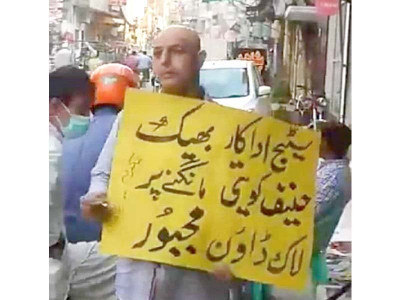 سٹیج اداکار بھیک
حنیف کویتی مانگنے پر
لاک ڈاؤن مجبور